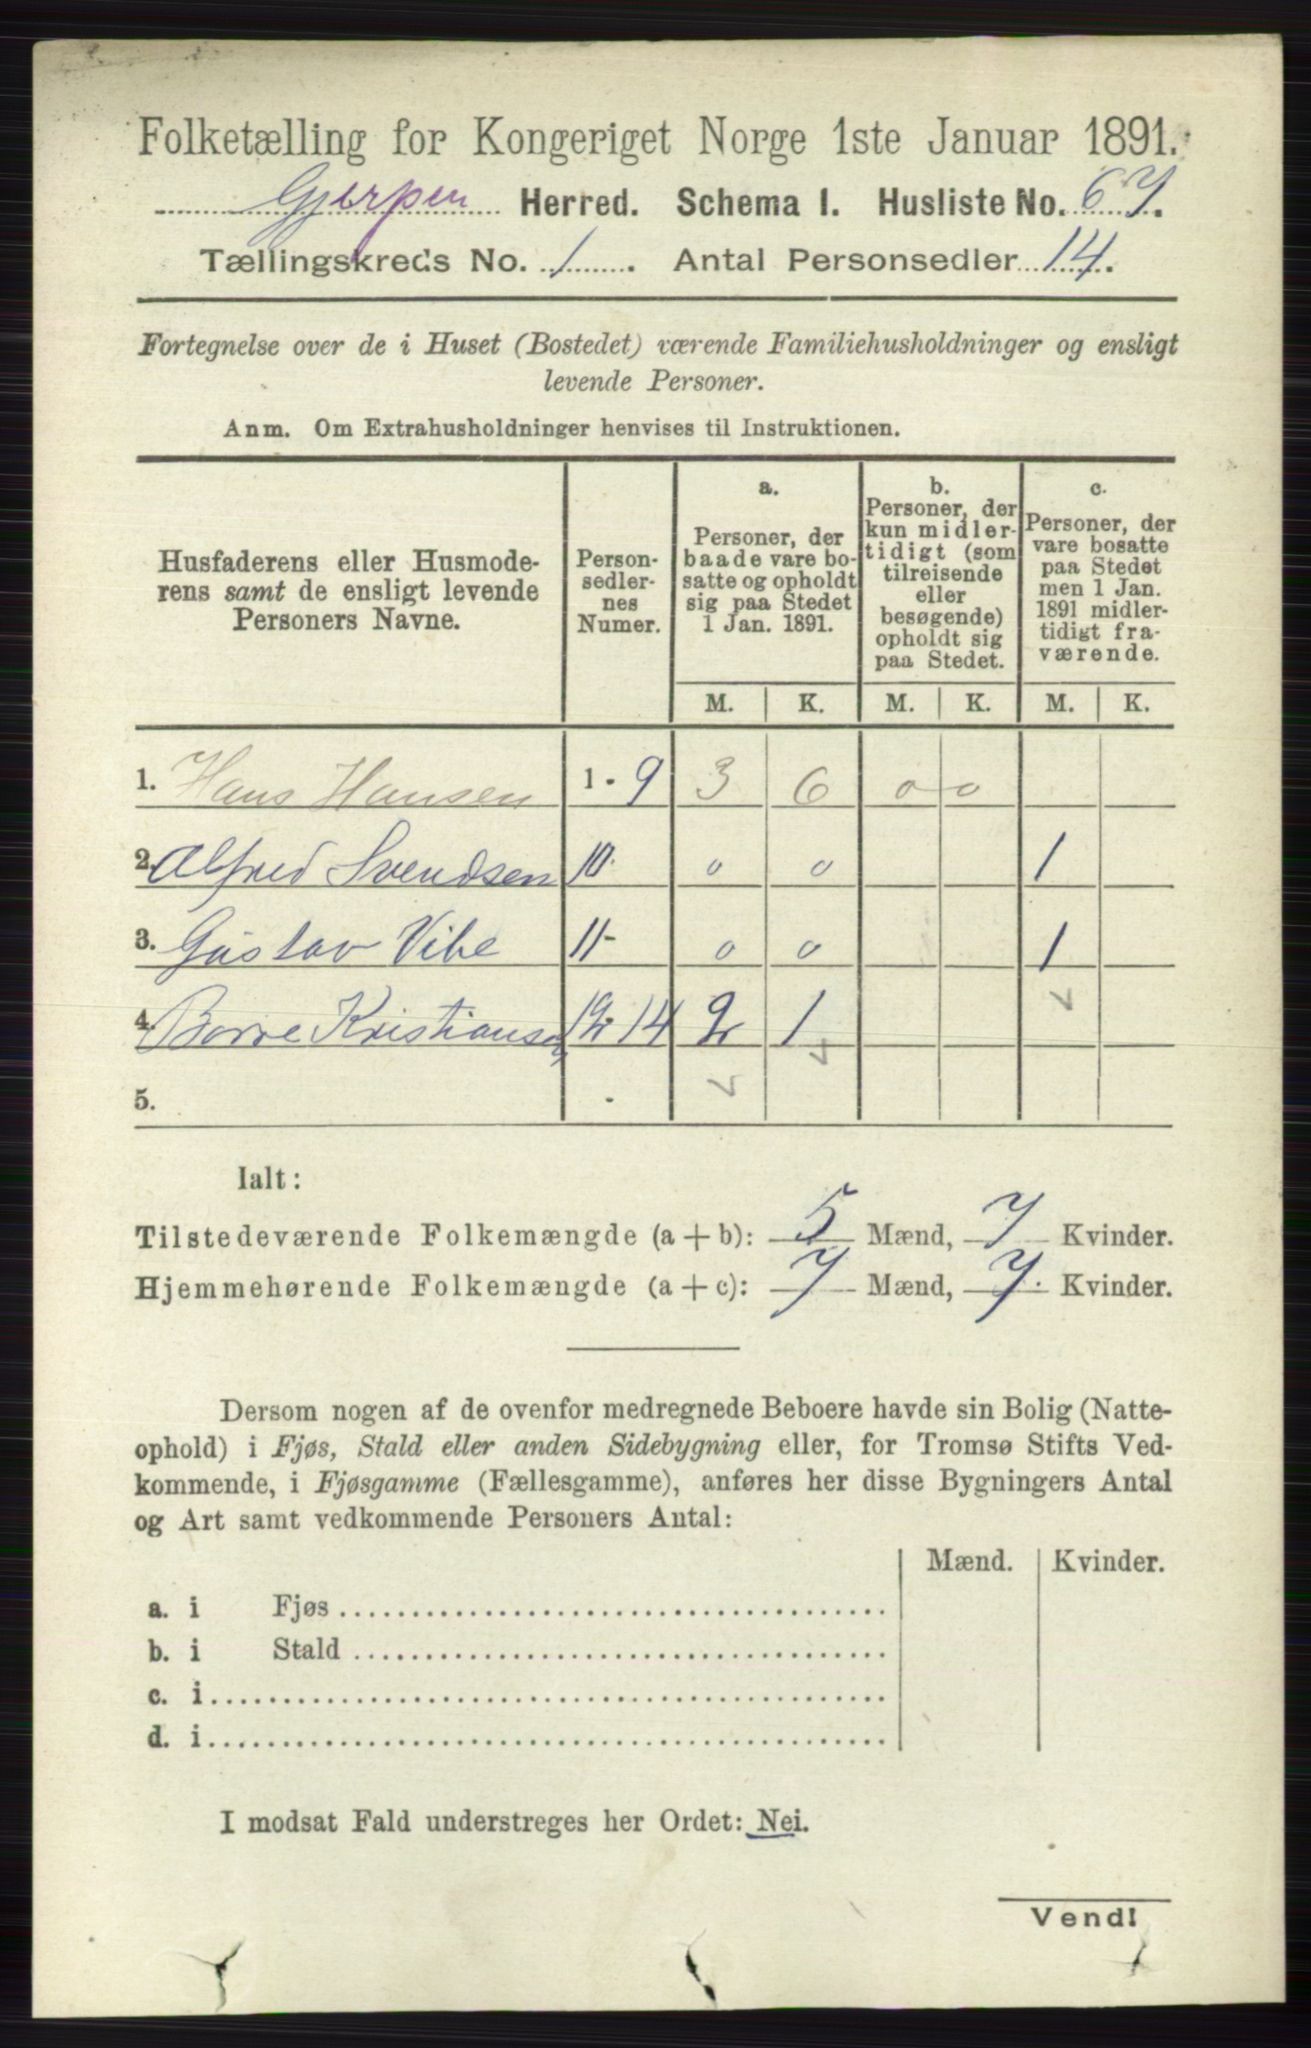 Folketælling for Kongeriget Norge 1ste Januar 1891.
Gjerpen Herred. Schema I. Husliste No. 67.
Tællingskreds No. 1. Antal Personsedler 14.
Fortegnelse over de i Huset (Bostedet) værende Familiehusholdninger og ensligt
levende Personer.
Anm. Om Extrahusholdninger henvises til Instruktionen.
Husfaderens eller Husmode-
rens samt de ensligt levende
Personers Navne.
Person-
sedler-
nes
Numer.
a.
Personer, der
baade vare bo-
satte og opholdt
sig paa Stedet
1 Jan. 1891.
b.
Personer, der
kun midler-
tidigt (som
tilreisende
eller
besøgende)
opholdt sig
paa Stedet.
c.
Personer, der
vare bosatte
paa Stedet
men 1 Jan.
1891 midler-
tidigt fra-
værende.
M. K. M. K. M. K.
1. Hans Hansen 1 - 9 3 6 0 0
2. Alfred Svendsen 10 0 0 1
3. Gustav Vibe 11 - 0 0 1
4. Borre Kristiansen 12 - 14 2 1
5. -
Ialt:
Tilstedeværende Folkemængde (a + b): 5 Mænd, 7 Kvinder.
Hjemmehørende Folkemængde (a + c): 7 Mænd, 7 Kvinder.
Dersom nogen af de ovenfor medregnede Beboere havde sin Bolig (Natte-
ophold) i Fjøs, Stald eller anden Sidebygning eller, for Tromsø Stifts Ved-
kommende, i Fjøsgamme (Fællesgamme), anføres her disse Bygningers Antal
og Art samt vedkommende Personers Antal:
Mænd. Kvinder.
a. i Fjøs
b. i Stald
c. i
d. i
I modsat Fald understreges her Ordet: Nei.
Vend!